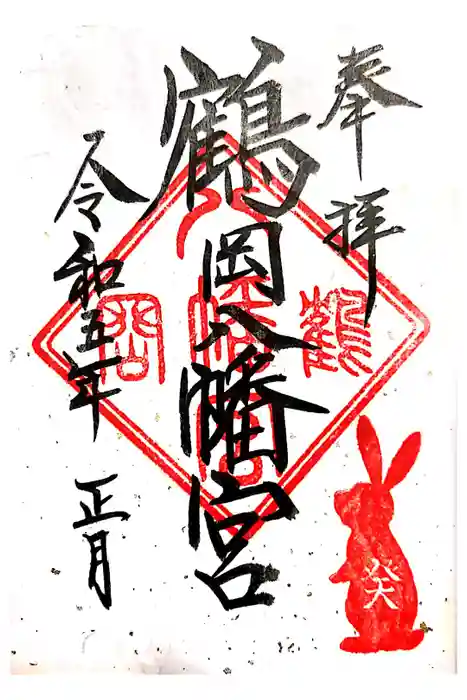 奉拝
鶴岡八幡宮
令和五年 正月
鶴
岡
癸